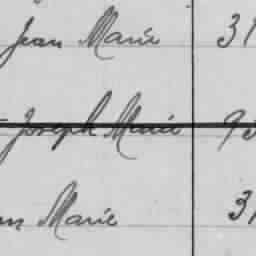 Jean Marie 31
Joseph Marie 93
Marie 31